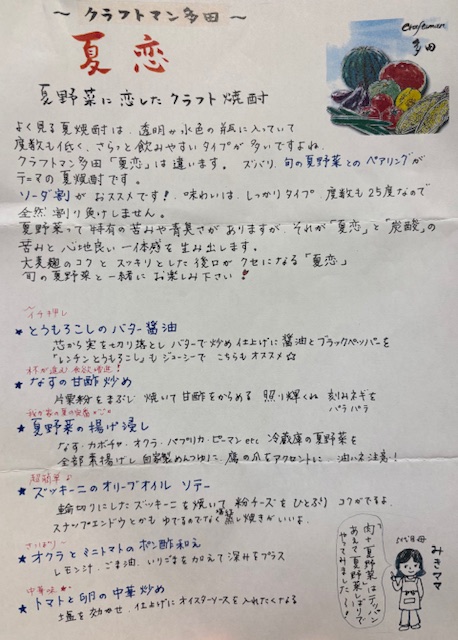 ～ クラフトマン多田 ～
Craftsman
多田
夏 恋
夏野菜に恋したクラフト焼酎
よく見る夏焼酎は、透明や水色の瓶に入っていて
度数も低く、さらっと飲みやすいタイプが多いですよね。
クラフトマン多田「夏恋」は違います。ズバリ、旬の夏野菜とのペアリングが
テーマの夏焼酎です。
ソーダ割がおススメです！味わいは、しっかりタイプ 度数も25度なので
全然割り負けしません。
夏野菜って特有の苦みや青臭さがありますが、それが「夏恋」と「炭酸」の
苦みと心地良い一体感を生み出します。
大麦麹のコクとスッキリとした後口がクセになる「夏恋」
旬の夏野菜と一緒にお楽しみ下さい！
イチ押し
★ とうもろこしのバター醤油
芯から実を切り落としバターで炒め仕上げに醤油とブラックペッパーを
「レンチンとうもろこし」もジューシーでこちらもオススメ☆
杯が進み食欲増進！
★ なすの甘酢炒め
片栗粉をまぶし焼いて甘酢をからめる 照り輝くね 刻みネギを
パラパラ
我が家の夏の定番
★ 夏野菜の揚げ浸し
なす・カボチャ・オクラ・パプリカ・ピーマン etc 冷蔵庫の夏野菜を
全部素揚げし自家製めんつゆに、鷹の爪をアクセントに、油ハネ注意！
超簡単
★ ズッキーニのオリーブオイル ソテー
輪切りにしたズッキーニを焼いて粉チーズをひとふり コクがでるよ
スナップエンドウとかも ゆでるのでなく 蒸し焼きがいいよ。
さっぱりー
★ オクラとミニトマトのポン酢和え
レモン汁、ごま油、いりごまを加えて深みをプラス
中華味
★ トマトと卵の中華炒め
塩を効かせ、仕上げにオイスターソースを入れたくなる
肉+夏野菜はテッパン
あえて夏野菜しばりで
やってみました～！
みきママ